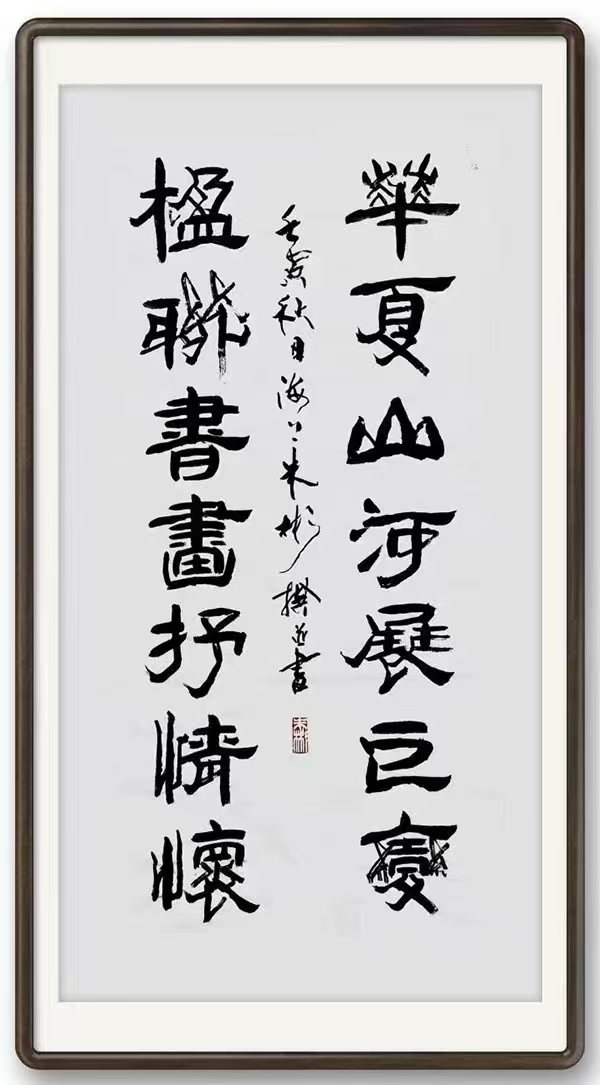 華夏山河展巨變
楹聯書畫抒情懷
壬寅秋日海上朱彬撰並書
朱彬